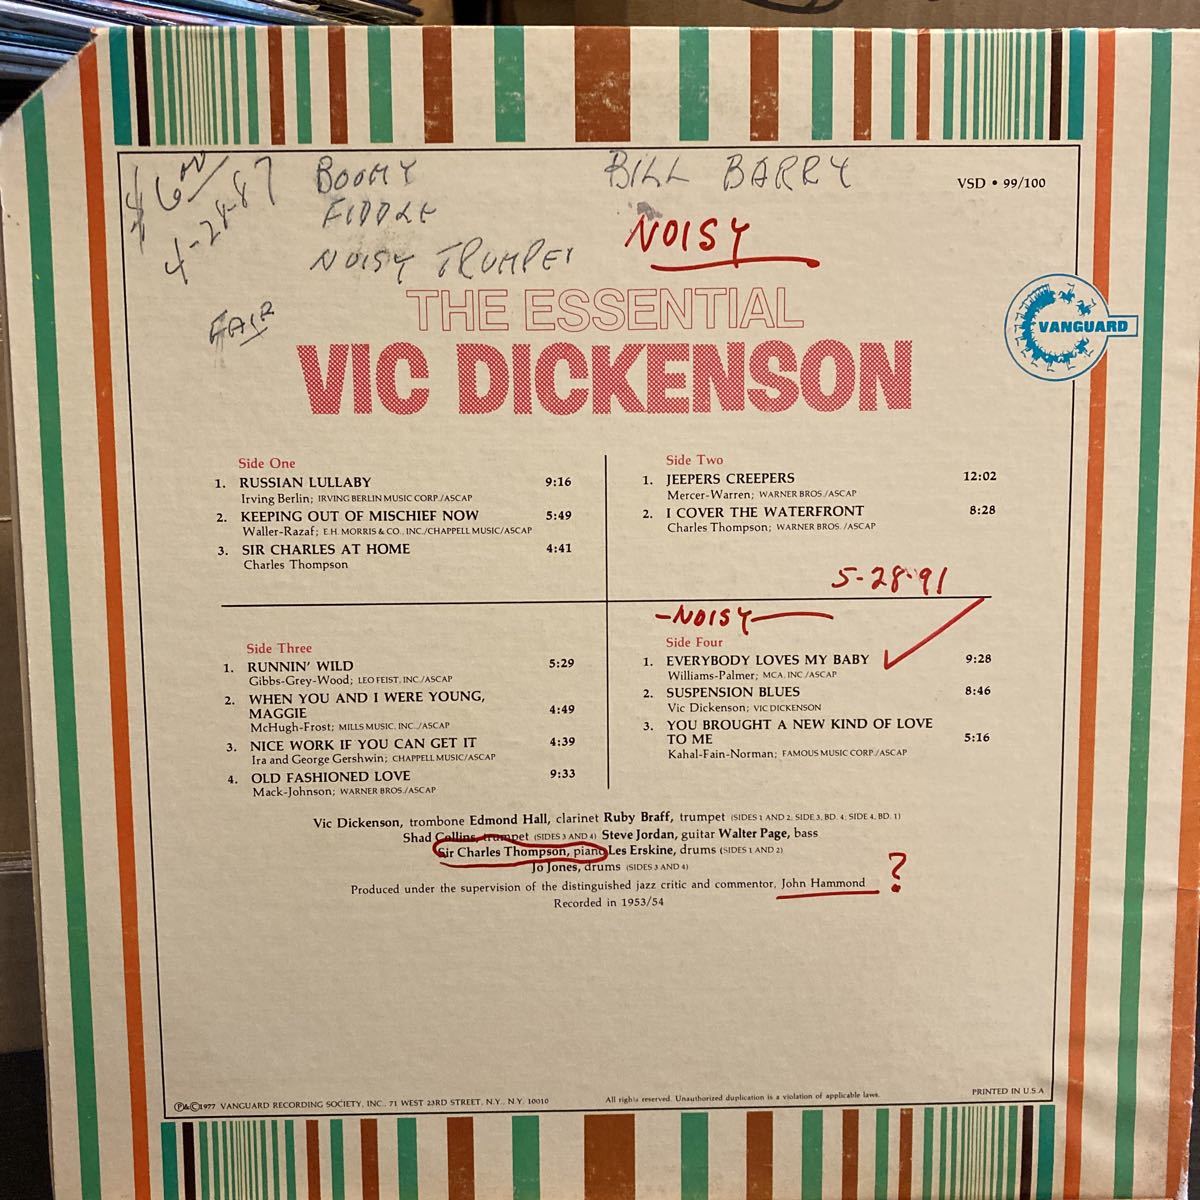 $6.00
4-28-87
BOOMY
FIDDLE
NOISY TRUMPET
BILL BARRY
NOISY
FAIR
VSD • 99/100
THE ESSENTIAL
VIC DICKENSON
VANGUARD
Side One
1. RUSSIAN LULLABY 9:16
Irving Berlin; IRVING BERLIN MUSIC CORP./ASCAP
2. KEEPING OUT OF MISCHIEF NOW 5:49
Waller-Razaf; E.H. MORRIS & CO., INC./CHAPPELL MUSIC/ASCAP
3. SIR CHARLES AT HOME 4:41
Charles Thompson
Side Two
1. JEEPERS CREEPERS 12:02
Mercer-Warren; WARNER BROS./ASCAP
2. I COVER THE WATERFRONT 8:28
Charles Thompson; WARNER BROS./ASCAP
5-28-91
Side Three
1. RUNNIN' WILD 5:29
Gibbs-Grey-Wood; LEO FEIST, INC./ASCAP
2. WHEN YOU AND I WERE YOUNG,
MAGGIE 4:49
McHugh-Frost; MILLS MUSIC, INC./ASCAP
3. NICE WORK IF YOU CAN GET IT 4:39
Ira and George Gershwin; CHAPPELL MUSIC/ASCAP
4. OLD FASHIONED LOVE 9:33
Mack-Johnson; WARNER BROS./ASCAP
-NOISY-
Side Four
1. EVERYBODY LOVES MY BABY 9:28
Williams-Palmer; MCA, INC./ASCAP
2. SUSPENSION BLUES 8:46
Vic Dickenson; VIC DICKENSON
3. YOU BROUGHT A NEW KIND OF LOVE
TO ME 5:16
Kahal-Fain-Norman; FAMOUS MUSIC CORP./ASCAP
Vic Dickenson, trombone Edmond Hall, clarinet Ruby Braff, trumpet (SIDES 1 AND 2, SIDE 3, BD. 4; SIDE 4, BD. 1)
Shad Collins, trumpet (SIDES 3 AND 4) Steve Jordan, guitar Walter Page, bass
Sir Charles Thompson, piano Les Erskine, drums (SIDES 1 AND 2)
Jo Jones, drums (SIDES 3 AND 4)
Produced under the supervision of the distinguished jazz critic and commentor, John Hammond ?
Recorded in 1953/54
℗&©1977 VANGUARD RECORDING SOCIETY, INC., 71 WEST 23RD STREET, N.Y., N.Y. 10010
All rights reserved. Unauthorized duplication is a violation of applicable laws.
PRINTED IN U.S.A